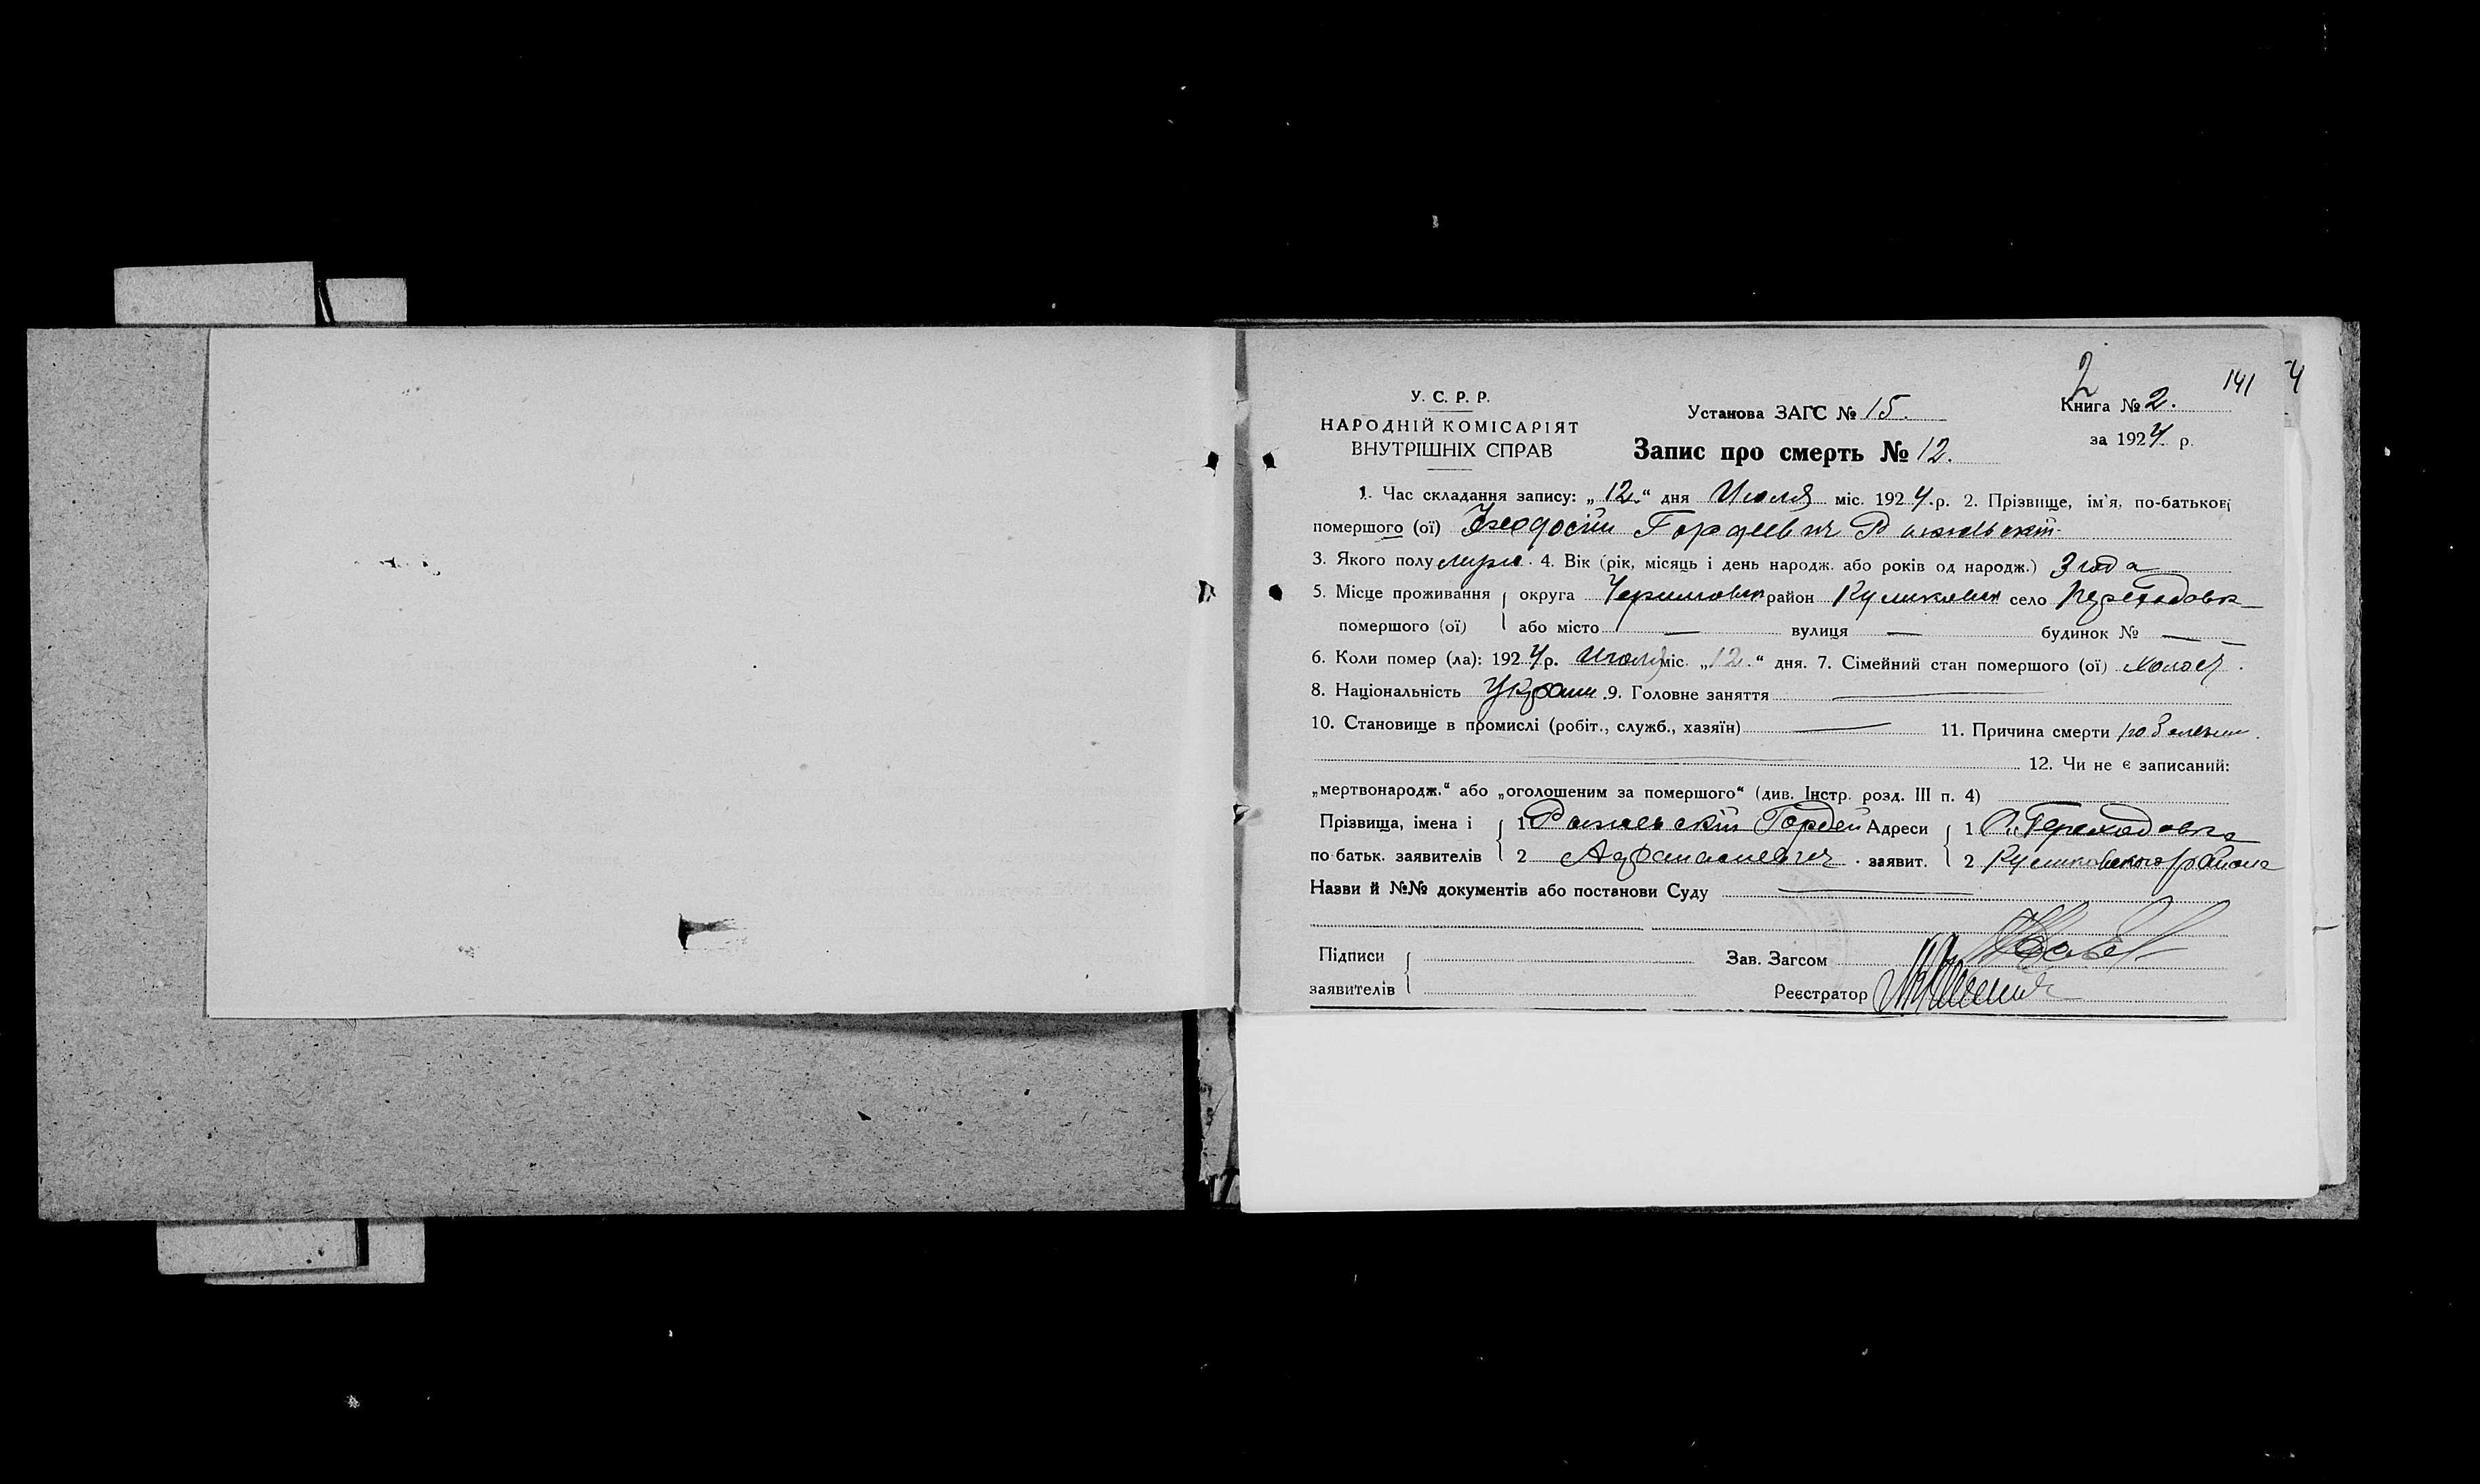 2
141
4
У. С. Р. Р.
НАРОДНІЙ КОМІСАРІЯТ
ВНУТРІШНІХ СПРАВ
Установа ЗАГС № 15.
Книга № 2.
за 1924 р.
Запис про смерть № 12.
1. Час складання запису: „12“ дня Июля міс. 1924 р. 2. Прізвище, ім'я, по-батькові
помершого (ої) Гордеевич
3. Якого полу муж. 4. Вік (рік, місяць і день народж. або років од народж.) 3 года
5. Місце проживання округа район село
помершого (ої) або місто — вулиця — будинок № —
6. Коли помер (ла): 1924 р. Июля міс. „12.“ дня. 7. Сімейний стан помершого (ої) холост.
8. Національність 9. Головне заняття —
10. Становище в промислі (робіт., служб., хазяїн) — 11. Причина смерти
12. Чи не є записаний:
„мертвонародж.“ або „оголошеним за помершого“ (див. Інстр. розд. III п. 4)
Прізвища, імена і 1 Гордей Адреси 1 Переходовка
по батьк. заявителів 2 заявит. 2 района
Назви й №№ документів або постанови Суду —
Підписи
заявителів
Зав. Загсом
Реєстратор